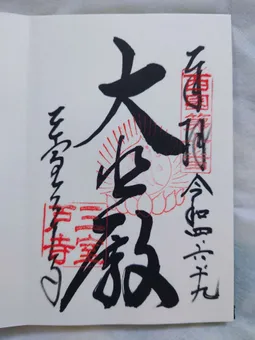 奉拝 令和四 六 廿九
大悲殿
三室戸寺
三室
戸寺